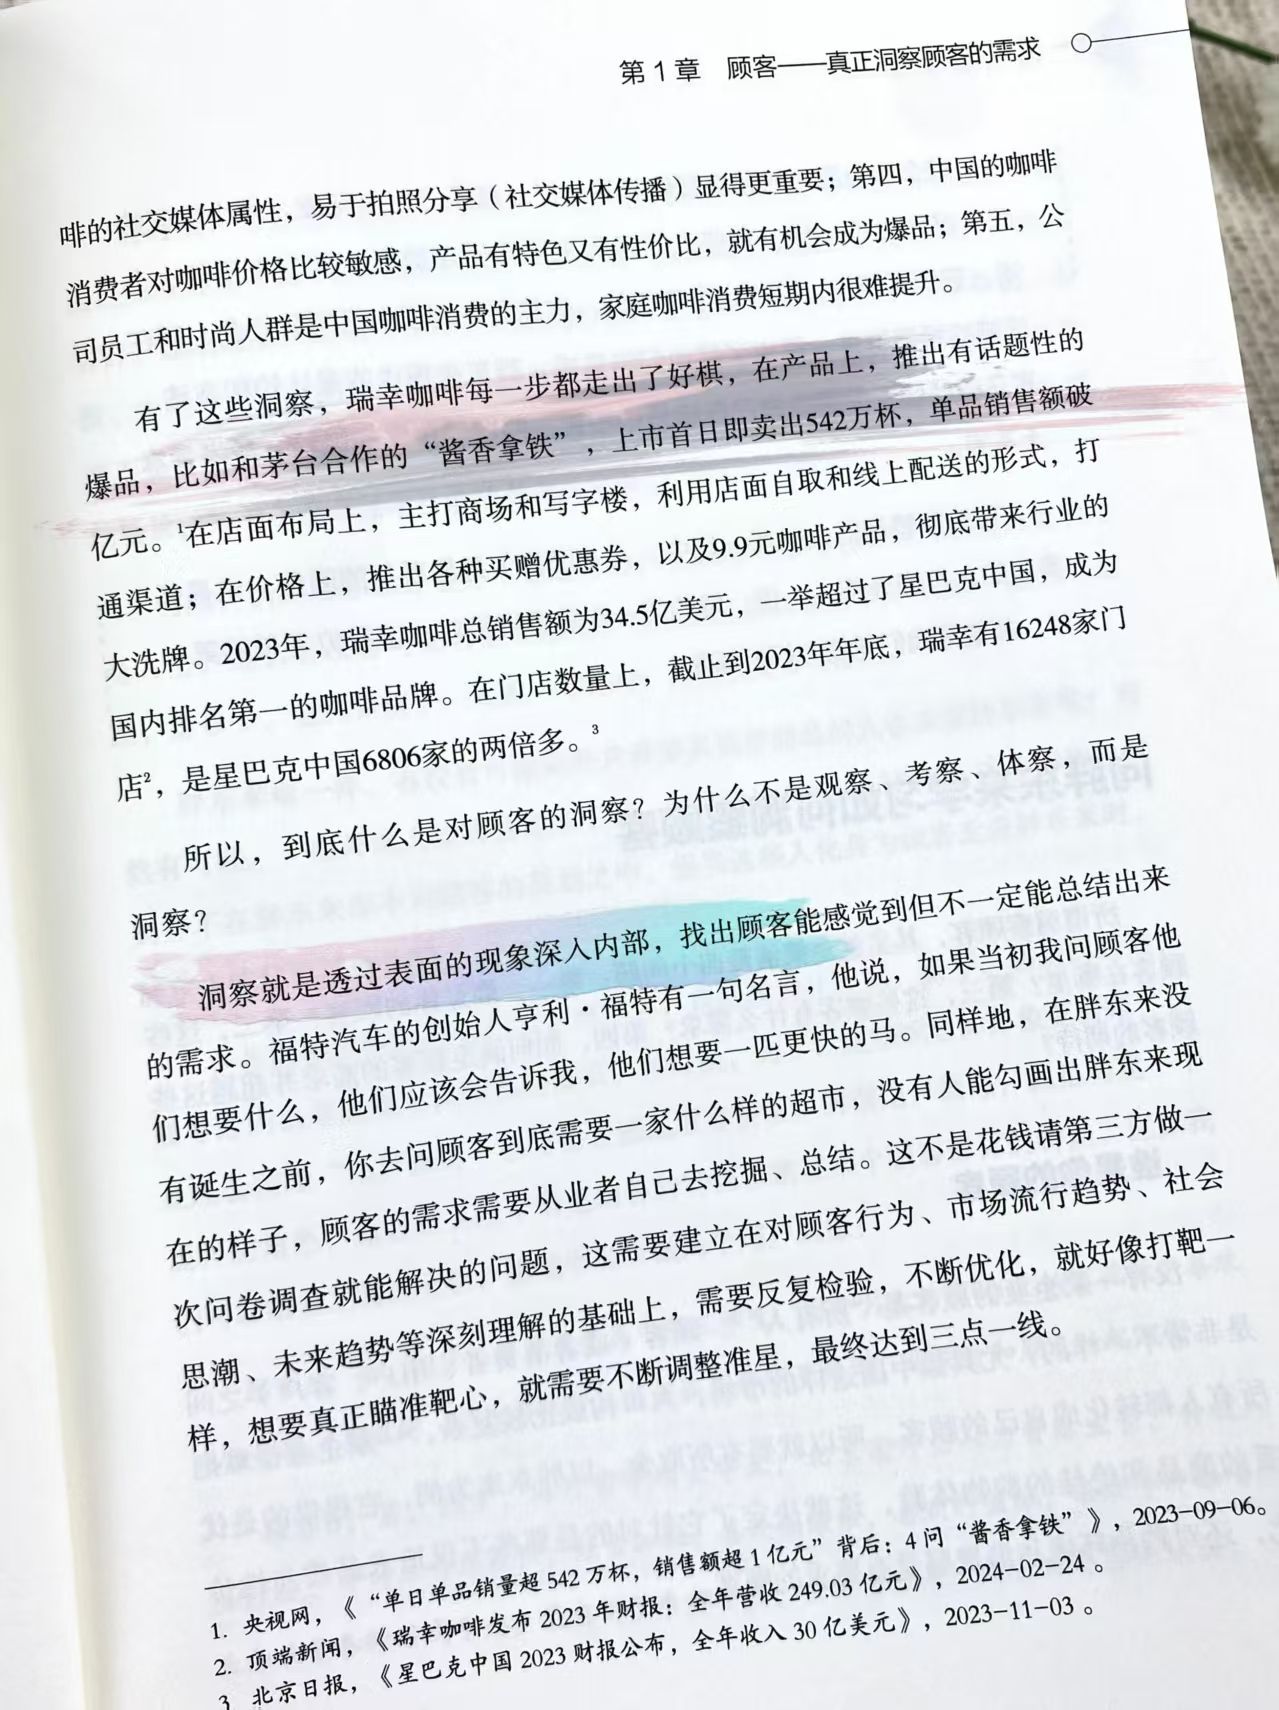 第 1 章　顾客——真正洞察顾客的需求
啡的社交媒体属性，易于拍照分享（社交媒体传播）显得更重要；第四，中国的咖啡
消费者对咖啡价格比较敏感，产品有特色又有性价比，就有机会成为爆品；第五，公
司员工和时尚人群是中国咖啡消费的主力，家庭咖啡消费短期内很难提升。
有了这些洞察，瑞幸咖啡每一步都走出了好棋，在产品上，推出有话题性的
爆品，比如和茅台合作的“酱香拿铁”，上市首日即卖出542万杯，单品销售额破
亿元。¹在店面布局上，主打商场和写字楼，利用店面自取和线上配送的形式，打
通渠道；在价格上，推出各种买赠优惠券，以及9.9元咖啡产品，彻底带来行业的
大洗牌。2023年，瑞幸咖啡总销售额为34.5亿美元，一举超过了星巴克中国，成为
国内排名第一的咖啡品牌。在门店数量上，截止到2023年年底，瑞幸有16248家门
店²，是星巴克中国6806家的两倍多。³
所以，到底什么是对顾客的洞察？为什么不是观察、考察、体察，而是
洞察？
洞察就是透过表面的现象深入内部，找出顾客能感觉到但不一定能总结出来
的需求。福特汽车的创始人亨利·福特有一句名言，他说，如果当初我问顾客他
们想要什么，他们应该会告诉我，他们想要一匹更快的马。同样地，在胖东来没
有诞生之前，你去问顾客到底需要一家什么样的超市，没有人能勾画出胖东来现
在的样子，顾客的需求需要从业者自己去挖掘、总结。这不是花钱请第三方做一
次问卷调查就能解决的问题，这需要建立在对顾客行为、市场流行趋势、社会
思潮、未来趋势等深刻理解的基础上，需要反复检验，不断优化，就好像打靶一
样，想要真正瞄准靶心，就需要不断调整准星，最终达到三点一线。
1. 央视网，《“单日单品销量超 542 万杯，销售额超 1 亿元”背后：4 问“酱香拿铁”》，2023-09-06。
2. 顶端新闻，《瑞幸咖啡发布 2023 年财报：全年营收 249.03 亿元》，2024-02-24 。
3 北京日报，《星巴克中国 2023 财报公布，全年收入 30 亿美元》，2023-11-03 。